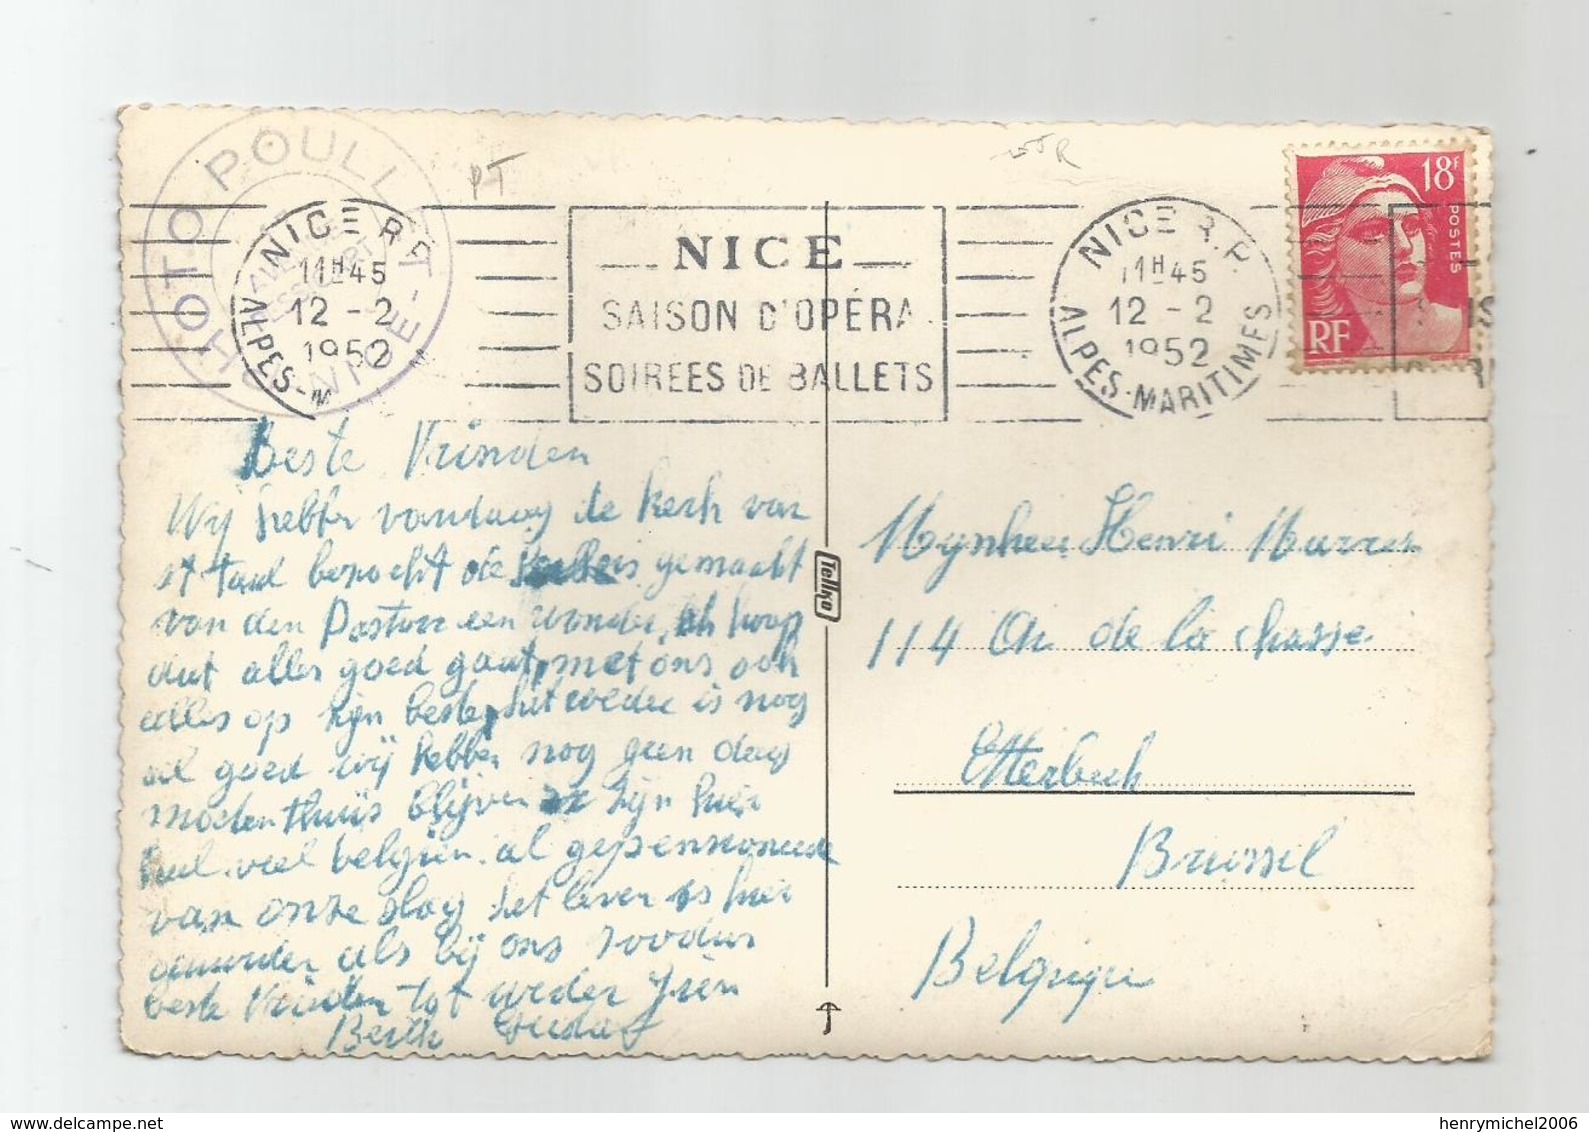 PHOTO POULL
NICE
NICE R.P.
11H45
12 - 2
1952
ALPES-M
PT
NICE
SAISON D'OPÉRA
SOIREES DE BALLETS
NICE R.P.
11H45
12 - 2
1952
ALPES-MARITIMES
18F
POSTES
RF
Beste Vrinden
Wij hebben vandaag de kerk van
st Paul bezocht de gemaakt
van den Pastoor een wonder, ik hoop
dat alles goed gaat, met ons ook
alles op zijn beste, het weder is nog
al goed wij hebben nog geen dag
moeten thuis blijven zijn hier
heel veel belgien al gepensioneerde
van onze slag het leven is hier
als bij ons
beste Vrinden tot weder zien
Berth
Tellko
Mynheer Henri Marres
114 Ch de la Chasse
Etterbeek
Brussel
Belgique
henrymichel2006